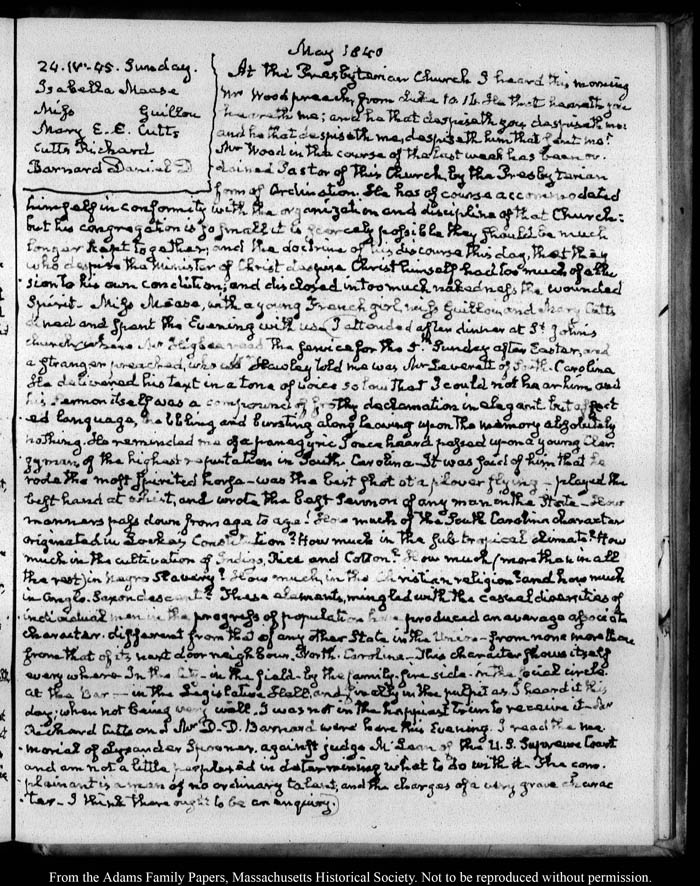 May 1840
24. IV:45. Sunday.
Isabella Mease
Miss Guillou
Mary E. E. Cutts
Cutts Richard
Barnard Daniel D
At the Presbyterian Church I heard this morning
Mr Wood preach, from Luke 10. 16. He that heareth you
heareth me; and he that despiseth you despiseth me:
and he that despiseth me, despiseth him that sent me.
Mr Wood in the course of the last week has been or-
dained Pastor of this Church, by the Presbyterian
form of Ordination. He has of course accommodated
himself in conformity with the organization and discipline of that Church:
but his congregation is so small it is scarcely possible they should be much
longer kept together, and the doctrine of his discourse this day, that they
who despise the Minister of Christ despise Christ himself had too much of allu-
sion to his own condition, and disclosed in too much nakedness the wounded
Spirit. Miss Mease, with a young French girl, Miss Guillou, and Mary Cutts
dined and spent the Evening with us. I attended after dinner at St. John's
church, where Mr Higbee read the service for the 5th Sunday after Easter, and
a stranger preached, who Mr Hawley told me was Mr Leverett of South-Carolina
He delivered his text in a tone of voice so low that I could not hear him and
his sermon itself was a compound of frothy declamation in elegant but affect-
ed language, bubbling and bursting along leaving upon the memory absolutely
nothing. He reminded me of a panegyric I once heard passed upon a young Cler-
gyman, of the highest reputation in South Carolina. It was said of him that he
rode the most spirited horse - was the best shot at a plover flying - played the
best hand at whist, and wrote the best Sermon of any man in the State - How
manners pass down from age to age! How much of the South Carolina character
originated in Locke's Constitution? How much in the sub-tropical climate? How
much in the cultivation of Indigo, Rice and Cotton? How much (more than in all
the rest) in Negro Slavery? How much in the Christian religion? and how much
in Anglo-Saxon descent? These elements, mingled with the casual diversities of
individual men in the progress of population have produced an average associate
character, different from that of any other State in the Union - from none more than
from that of its next door neighbour, North-Carolina - This character shows itself
every where - In the City - in the field - by the family fire-side - in the social circle
at the Bar - in the Legislative Hall, and finally in the pulpit as I heard it this
day, when not being very well, I was not in the happiest trim to receive it - Mr
Richard Cutts and Mr D. D. Barnard were here this Evening. I read the me-
morial of Lysander Spooner, against judge McLean of the U. S. Supreme Court
and am not a little perplexed in determining what to do with it - The com-
plainant is a man of no ordinary talent, and the charges of a very grave charac-
ter - I think there ought to be an enquiry.
From the Adams Family Papers, Massachusetts Historical Society. Not to be reproduced without permission.